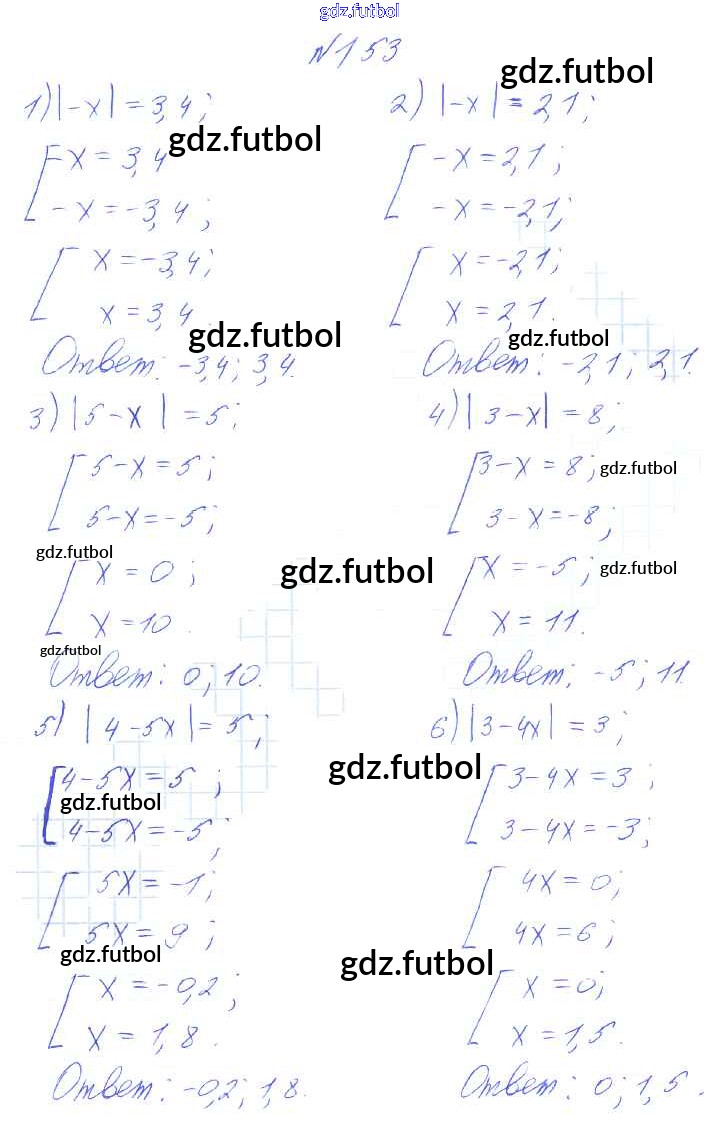 gdz.futbol
№153
gdz.futbol
1) |-x| = 3,4;
gdz.futbol
[-x = 3,4
-x = -3,4;
[x = -3,4;
x = 3,4
gdz.futbol
Ответ: -3,4; 3,4.
2) |-x| = 2,1;
[-x = 2,1;
-x = -2,1;
[x = -2,1;
x = 2,1.
gdz.futbol
Ответ: -2,1; 2,1.
3) |5-x| = 5;
[5-x = 5;
5-x = -5;
gdz.futbol
[x = 0;
x = 10.
gdz.futbol
gdz.futbol
Ответ: 0; 10.
4) |3-x| = 8;
[3-x = 8;
gdz.futbol
3-x = -8;
[x = -5;
gdz.futbol
x = 11.
Ответ: -5; 11.
5) |4-5x| = 5;
[4-5x = 5;
gdz.futbol
4-5x = -5;
[5x = -1;
5x = 9;
gdz.futbol
[x = -0,2;
x = 1,8.
Ответ: -0,2; 1,8.
6) |3-4x| = 3;
gdz.futbol
[3-4x = 3;
3-4x = -3;
[4x = 0;
4x = 6;
gdz.futbol
[x = 0;
x = 1,5.
Ответ: 0; 1,5.